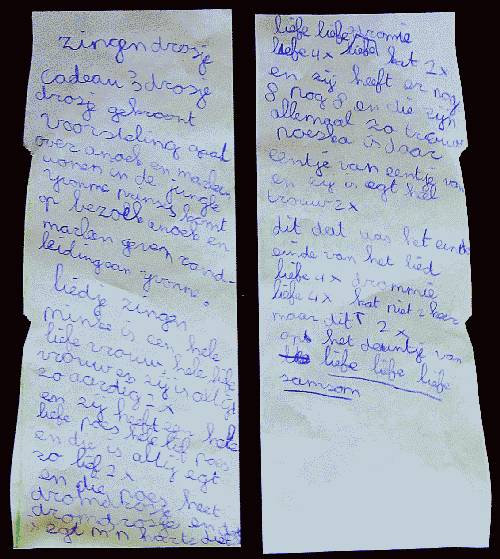 zingen drosje
Cadeau 3 drosje
drosje gekroont
voorstelling gaat
over anoek en marleen
wonen in de jungle
yvonne prinses komt
op bezoek anoek en
marleen geven rond-
leiding aan yvonne.
liedje zingen
minke is een hele
liefe vrouw hele liefe
vrouw en zij is altijt
zo aardig 2 x
en zij heeft een hele
liefe poes hele lief poes
en die is altij egt
zo lief 2 x
en die poes heet
en
egt m'n harte
liefe liefe drommie
liefe 4x liefe kat 2x
en zij heeft er nog
8 nog 8 en die zijn
allemaal zo trouw
poeska is daar
eentje van eentje van
en zij is egt heel
trouw 2x
dit deel was het einde
einde van het lied
liefe 4x drommie
liefe 4x kat niet 2 keer
maar dit 2 x
op het deuntje van
liefe liefe liefe
samson